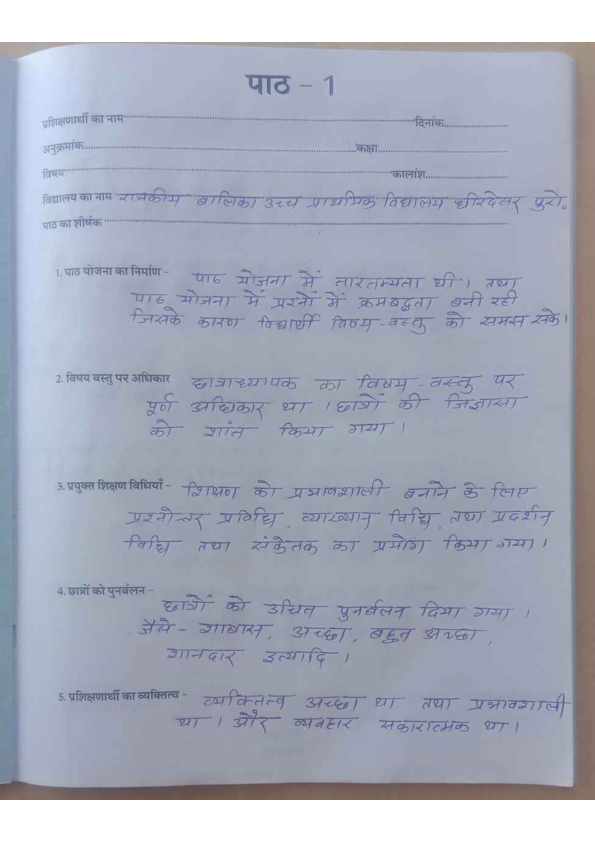 पाठ - 1
प्रशिक्षणार्थी का नाम दिनांक
अनुक्रमांक कक्षा
विषय कालांश
विद्यालय का नाम राजकीय बालिका उच्च प्राथमिक विद्यालय धीरदेसर पुरो.
पाठ का शीर्षक
1. पाठ योजना का निर्माण - पाठ योजना में तारतम्यता थी। तथा
पाठ योजना में प्रश्नों में क्रमबद्धता बनी रही
जिसके कारण विद्यार्थी विषय-वस्तु को समझ सके।
2. विषय वस्तु पर अधिकार छात्राध्यापक का विषय-वस्तु पर
पूर्ण अधिकार था । छात्रों की जिज्ञासा
को शांत किया गया।
3. प्रयुक्त शिक्षण विधियाँ - शिक्षण को प्रभावशाली बनाने के लिए
प्रश्नोत्तर प्रविधि, व्याख्यान विधि, तथा प्रदर्शन
विधि तथा संकेतक का प्रयोग किया गया।
4. छात्रों को पुनर्बलन -
छात्रों को उचित पुनर्बलन दिया गया ।
जैसे - शाबास, अच्छा, बहुत अच्छा,
शानदार इत्यादि ।
5. प्रशिक्षणार्थी का व्यक्तित्व - व्यक्तित्व अच्छा था तथा प्रभावशाली
था । और व्यवहार सकारात्मक था।